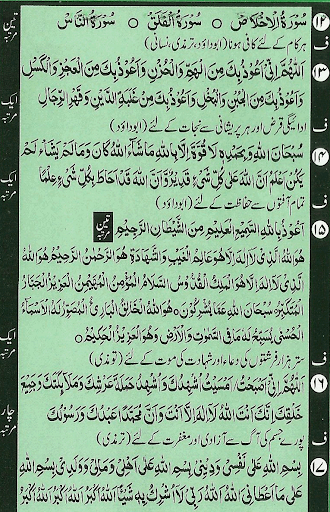 ۱۲ سُوْرَةُ الْاِخْلَاصْ ○ سُوْرَةُ الْفَلَقْ ○ سُوْرَةُ النَّاسْ تین مرتبہ
ہر کام کے لئے کافی ہونا (ابوداؤد، ترمذی، نسائی) ف
۱۳ اَللّٰهُمَّ اِنِّیْ اَعُوْذُ بِكَ مِنَ الْهَمِّ وَالْحُزْنِ وَاَعُوْذُ بِكَ مِنَ الْعَجْزِ وَالْكَسَلِ
وَاَعُوْذُ بِكَ مِنَ الْجُبْنِ وَالْبُخْلِ وَاَعُوْذُ بِكَ مِنْ غَلَبَةِ الدَّيْنِ وَقَهْرِ الرِّجَالِ ایک مرتبہ
ادائیگی قرض اور ہر پریشانی سے نجات کے لئے (ابوداؤد) ف
۱۴ سُبْحَانَ اللّٰهِ وَبِحَمْدِهٖ لَا قُوَّةَ اِلَّا بِاللّٰهِ مَا شَآءَ اللّٰهُ كَانَ وَمَا لَمْ يَشَاْ لَمْ
يَكُنْ اَعْلَمُ اَنَّ اللّٰهَ عَلٰى كُلِّ شَیْءٍ قَدِيْرٌ وَّاَنَّ اللّٰهَ قَدْ اَحَاطَ بِكُلِّ شَیْءٍ عِلْمًا ایک مرتبہ
تمام آفتوں سے حفاظت کے لئے (ابوداؤد) ف
۱۵ اَعُوْذُ بِاللّٰهِ السَّمِيْعِ الْعَلِيْمِ مِنَ الشَّيْطٰنِ الرَّجِيْمِ تین مرتبہ
هُوَ اللّٰهُ الَّذِیْ لَآ اِلٰهَ اِلَّا هُوَ عَالِمُ الْغَيْبِ وَالشَّهَادَةِ هُوَ الرَّحْمٰنُ الرَّحِيْمُ هُوَ اللّٰهُ
الَّذِیْ لَآ اِلٰهَ اِلَّا هُوَ الْمَلِكُ الْقُدُّوْسُ السَّلَامُ الْمُؤْمِنُ الْمُهَيْمِنُ الْعَزِيْزُ الْجَبَّارُ
الْمُتَكَبِّرُ سُبْحَانَ اللّٰهِ عَمَّا يُشْرِكُوْنَ ○ هُوَ اللّٰهُ الْخَالِقُ الْبَارِئُ الْمُصَوِّرُ لَهُ الْاَسْمَآءُ
الْحُسْنٰى يُسَبِّحُ لَهٗ مَا فِی السَّمٰوٰتِ وَالْاَرْضِ وَهُوَ الْعَزِيْزُ الْحَكِيْمُ ○ ایک مرتبہ
ستر ہزار فرشتوں کی دعاء اور شہادت کی موت کے لئے (ترمذی) ف
۱۶ اَللّٰهُمَّ اِنِّیْ اَصْبَحْتُ / اَمْسَيْتُ اُشْهِدُكَ وَاُشْهِدُ حَمَلَةَ عَرْشِكَ وَمَلٰٓئِكَتَكَ وَجَمِيْعَ
خَلْقِكَ اِنَّكَ اَنْتَ اللّٰهُ لَآ اِلٰهَ اِلَّا اَنْتَ وَاَنَّ مُحَمَّدًا عَبْدُكَ وَرَسُوْلُكَ چار مرتبہ
پورے جسم کی آگ سے آزادی اور مغفرت کے لئے (ترمذی) ف
۱۷ بِسْمِ اللّٰهِ عَلٰى نَفْسِیْ وَدِيْنِیْ بِسْمِ اللّٰهِ عَلٰى اَهْلِیْ وَمَالِیْ وَوَلَدِیْ بِسْمِ اللّٰهِ
عَلٰى مَا اَعْطَانِیَ اللّٰهُ اَللّٰهُ رَبِّیْ لَآ اُشْرِكُ بِهٖ شَيْئًا اَللّٰهُ اَكْبَرُ اَللّٰهُ اَكْبَرُ اَللّٰهُ اَكْبَرُ